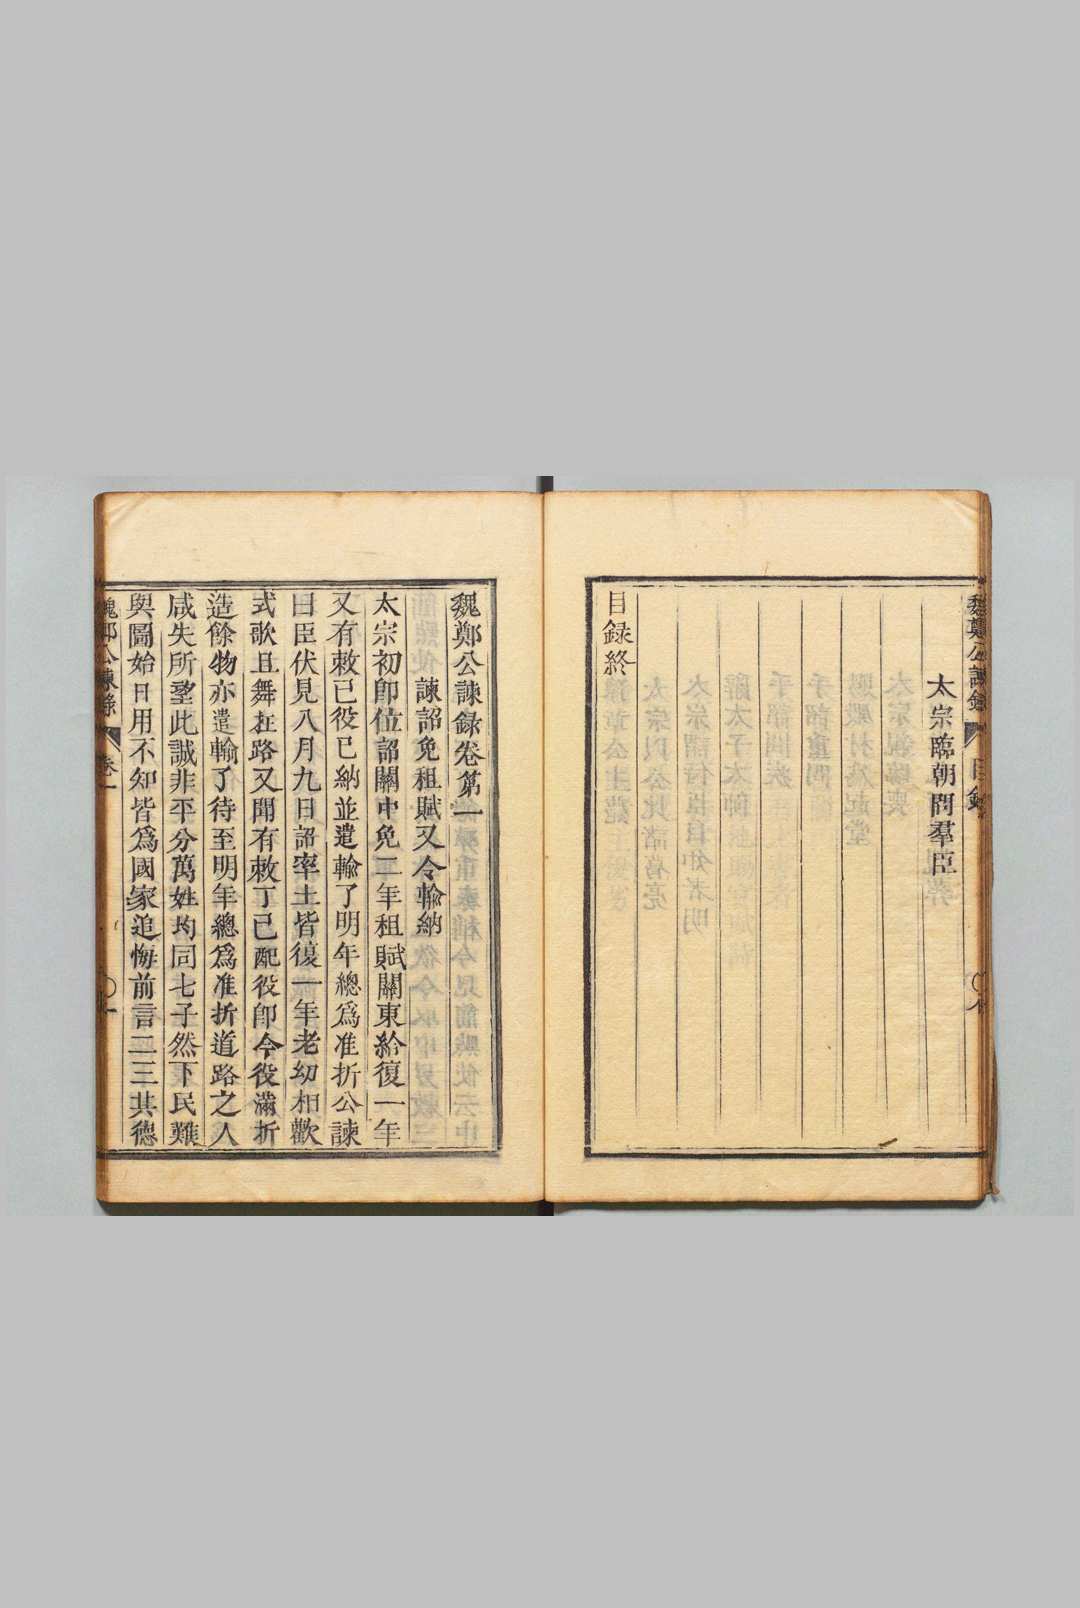 魏鄭公諫録
目録
太宗臨朝問羣臣
目録終
魏鄭公諫録卷第一
諫詔免租賦又令輸納
太宗初卽位詔關中免二年租賦關東給復一年
又有敕已役已納並遣輸了明年總爲准折公諫
曰臣伏見八月九日詔率土皆復一年老幼相歡
式歌且舞在路又聞有敕丁已配役卽令役滿折
造餘物亦遣輸了待至明年總爲准折道路之人
咸失所望此誠非平分萬姓均同七子然下民難
與圖始日用不知皆爲國家追悔前言二三其德
魏鄭公諫録
卷一